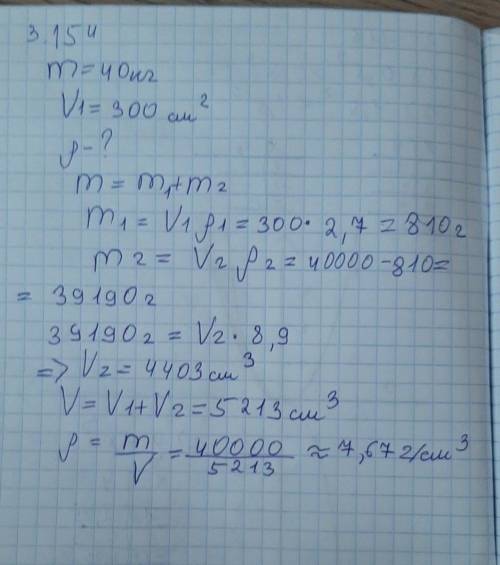 3.15ч
m=40кг
V1=300 см²
ρ-?
m=m1+m2
m1=V1ρ1=300·2,7=810г
m2=V2ρ2=40000-810=
=39190г
39190г=V2·8,9
=>V2=4403см³
V=V1+V2=5213см³
ρ=m/V=40000/5213≈7,67г/см³